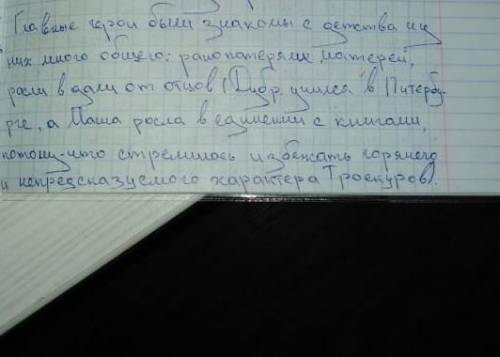 Главные герои были знакомы с детства и у
них много общего: рано потеряли матерей,
росли вдали от отцов (Дубр. учился в Питербу-
рге, а Маша росла в единении с книгами,
потому-что стремилась избежать горячего
и непредсказуемого характера Троекуров).